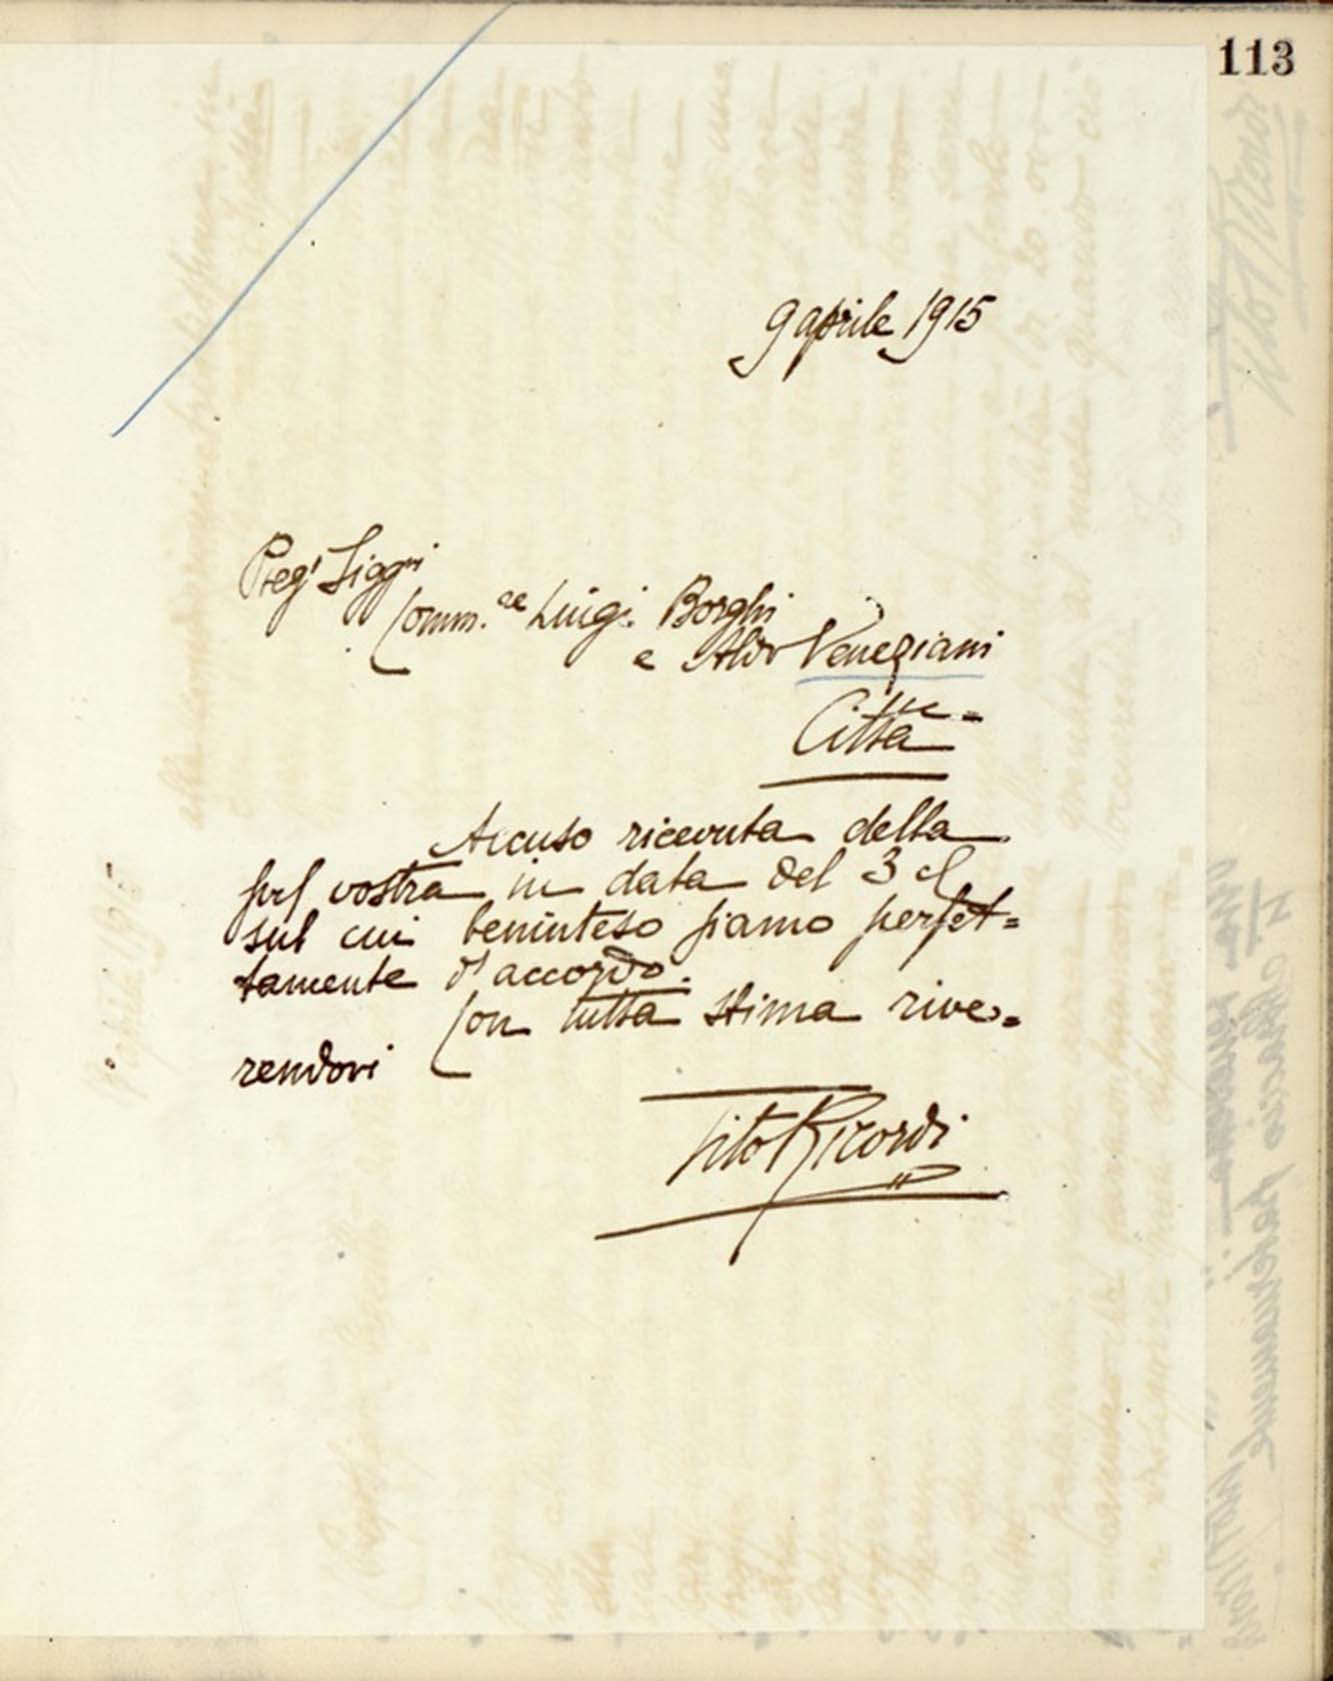 113
9 aprile 1915
Preg.i Sigg.ri
Comm.re Luigi Borghi
e Aldo Veneziani
Città =
Accuso ricevuta della
vostra in data del 3
sul cui beninteso siamo perfet=
tamente d'accordo.
Con tutta stima rive=
rendovi
Tito Ricordi